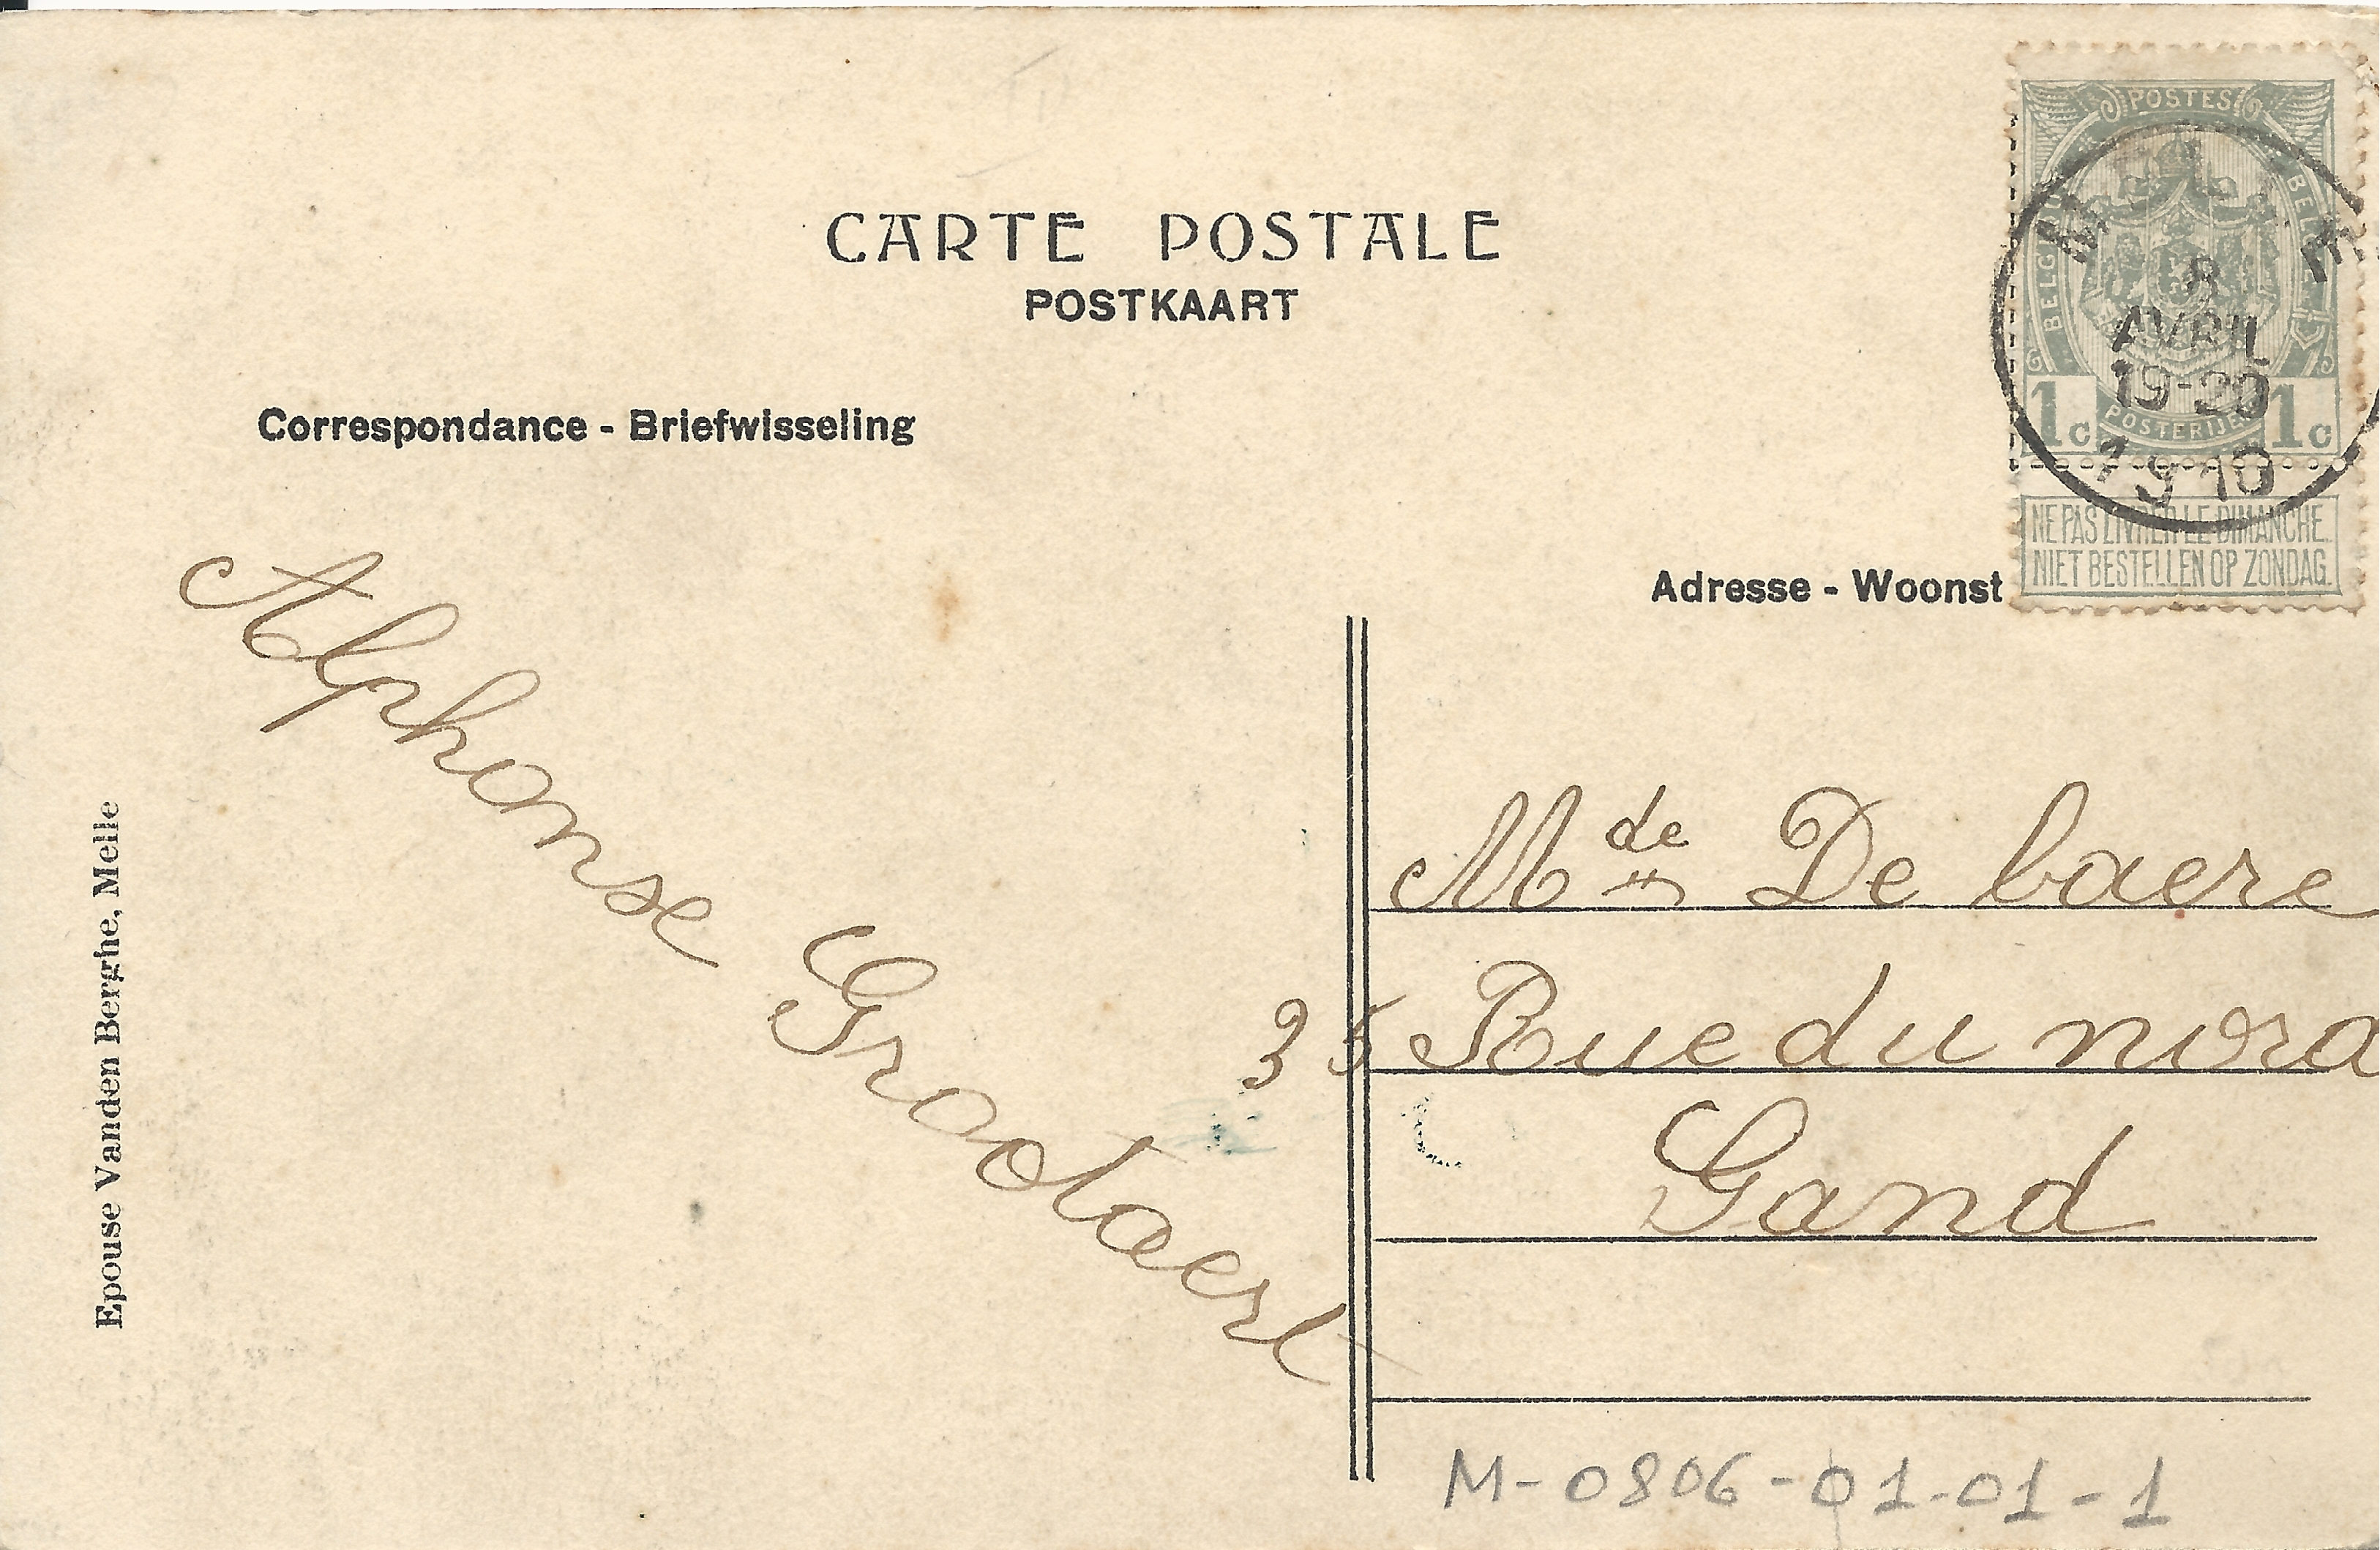 CARTE POSTALE
POSTKAART
Correspondance - Briefwisseling
Adresse - Woonst
POSTES
1c POSTERIJEN 1c
8
AVRIL
19-20
1910
NE PAS LIVRER LE DIMANCHE.
NIET BESTELLEN OP ZONDAG.
Alphonse Grootaert
Mde De baere
35 Rue du nord
Gand
Epouse Vanden Berghe, Melle
M-0806-01-01-1